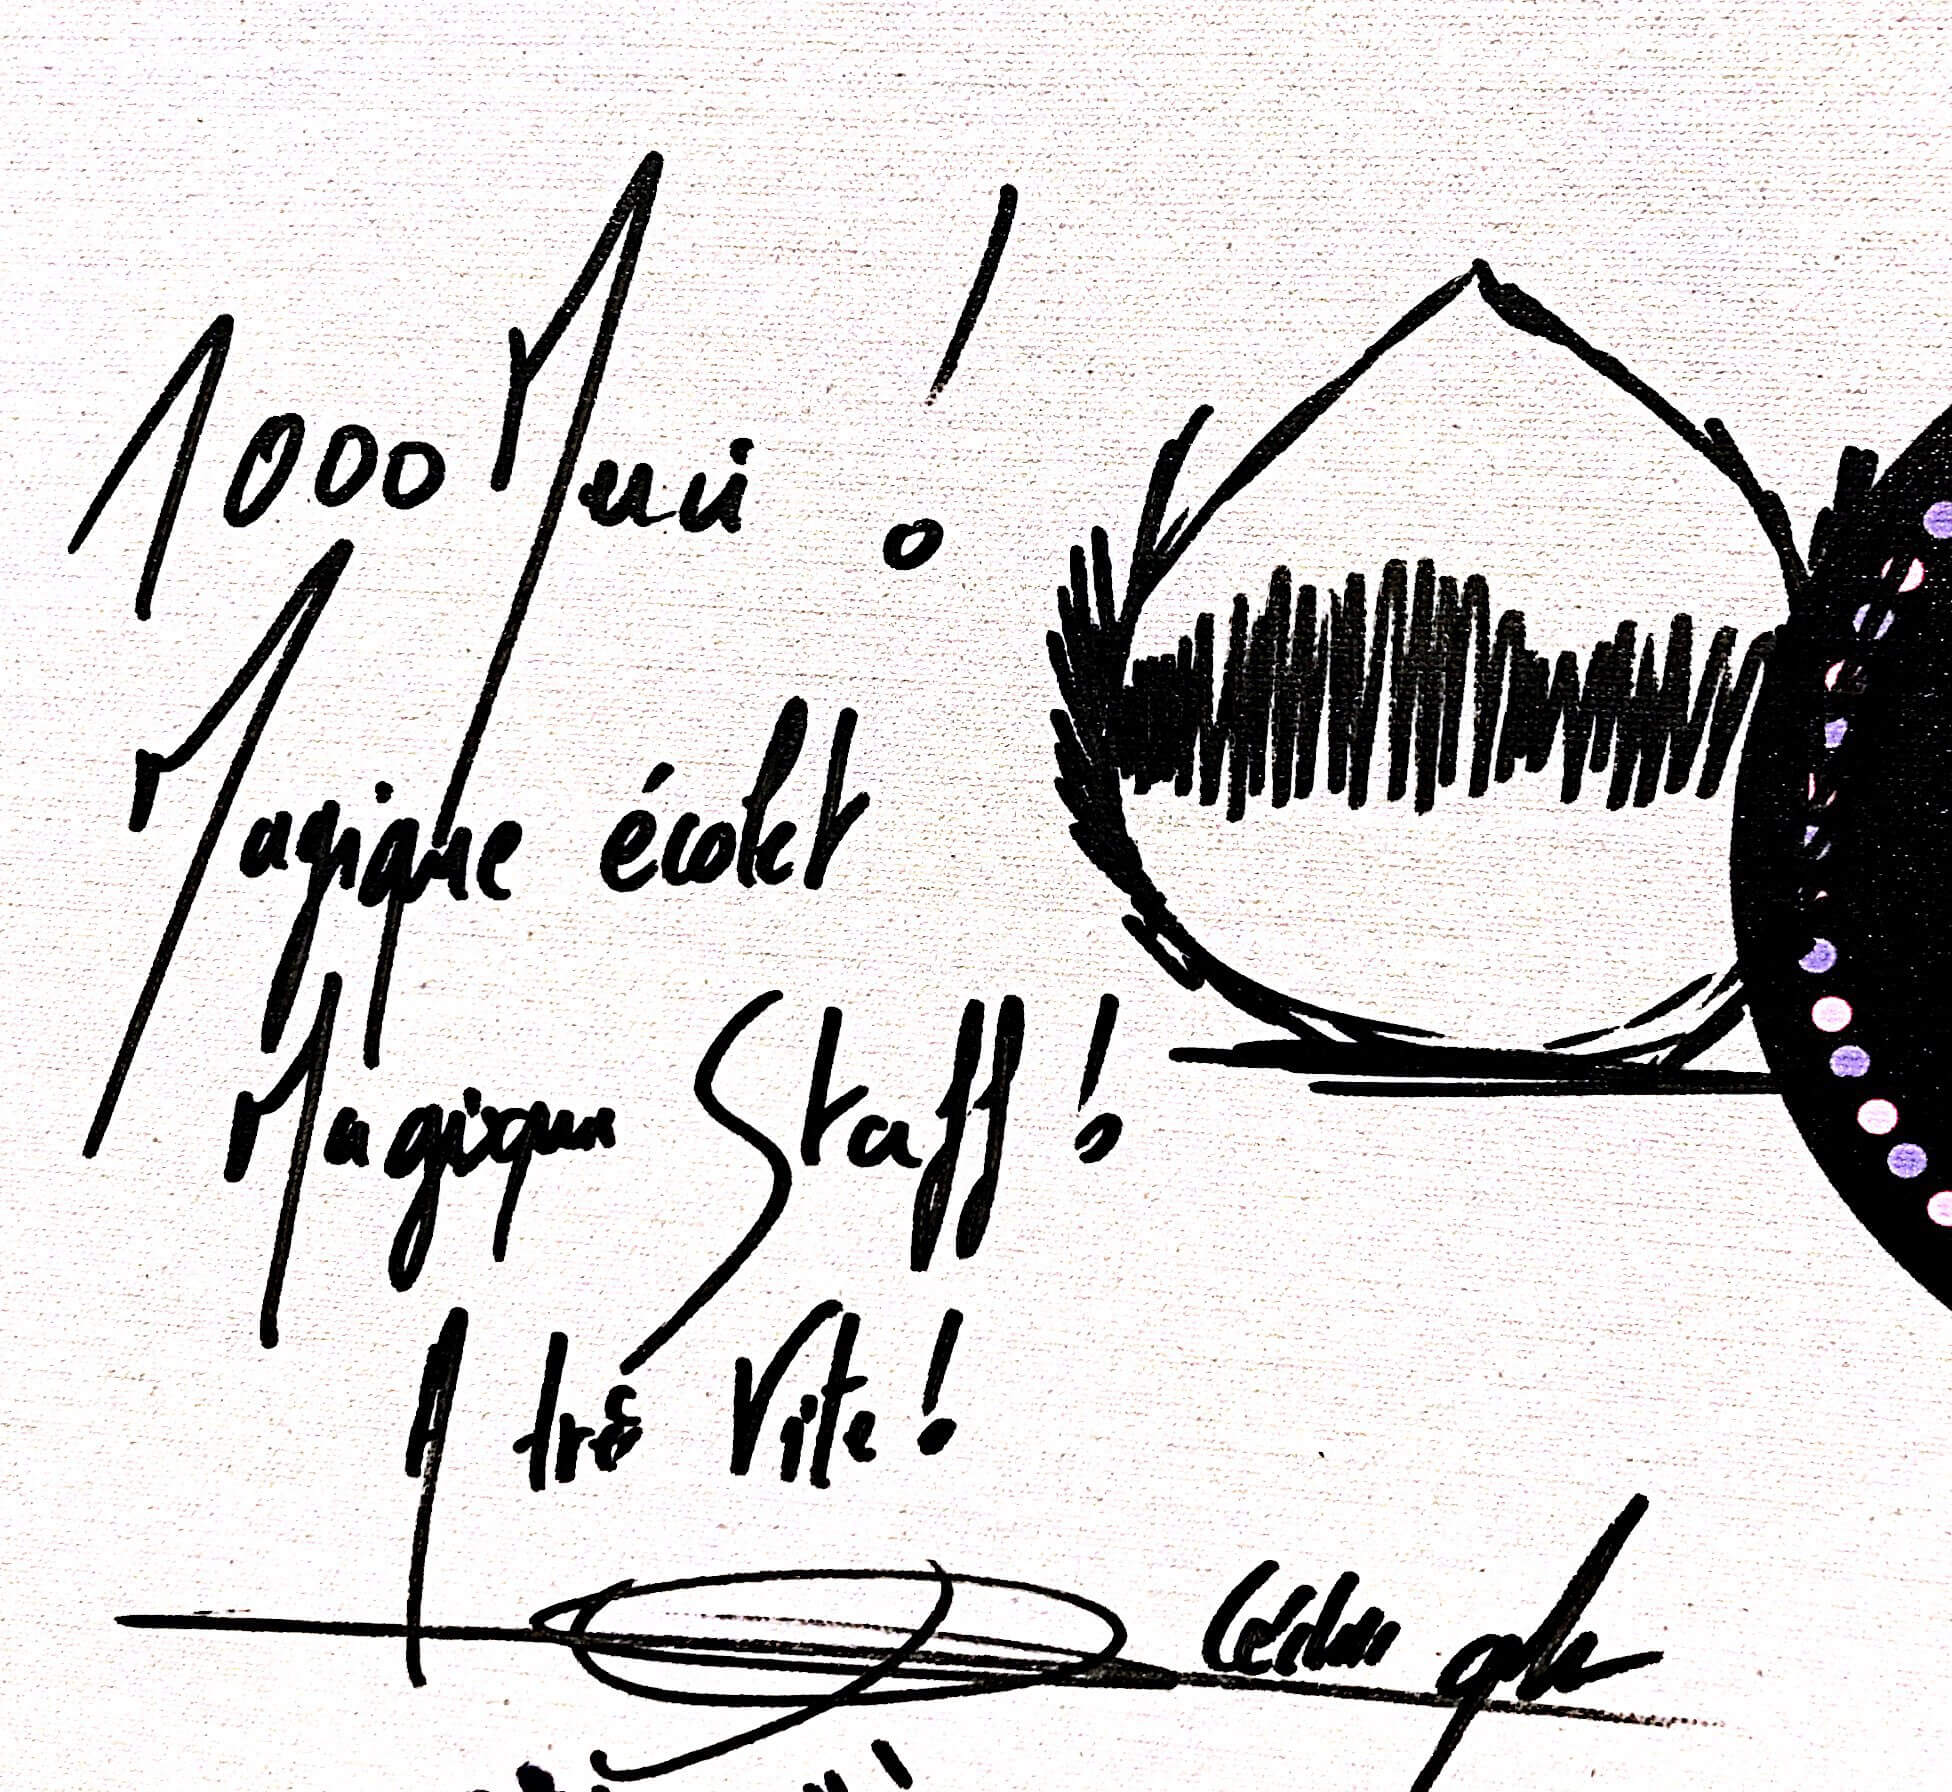 1000 Merci !
Magique école et
Magique Staff !
A très Vite !